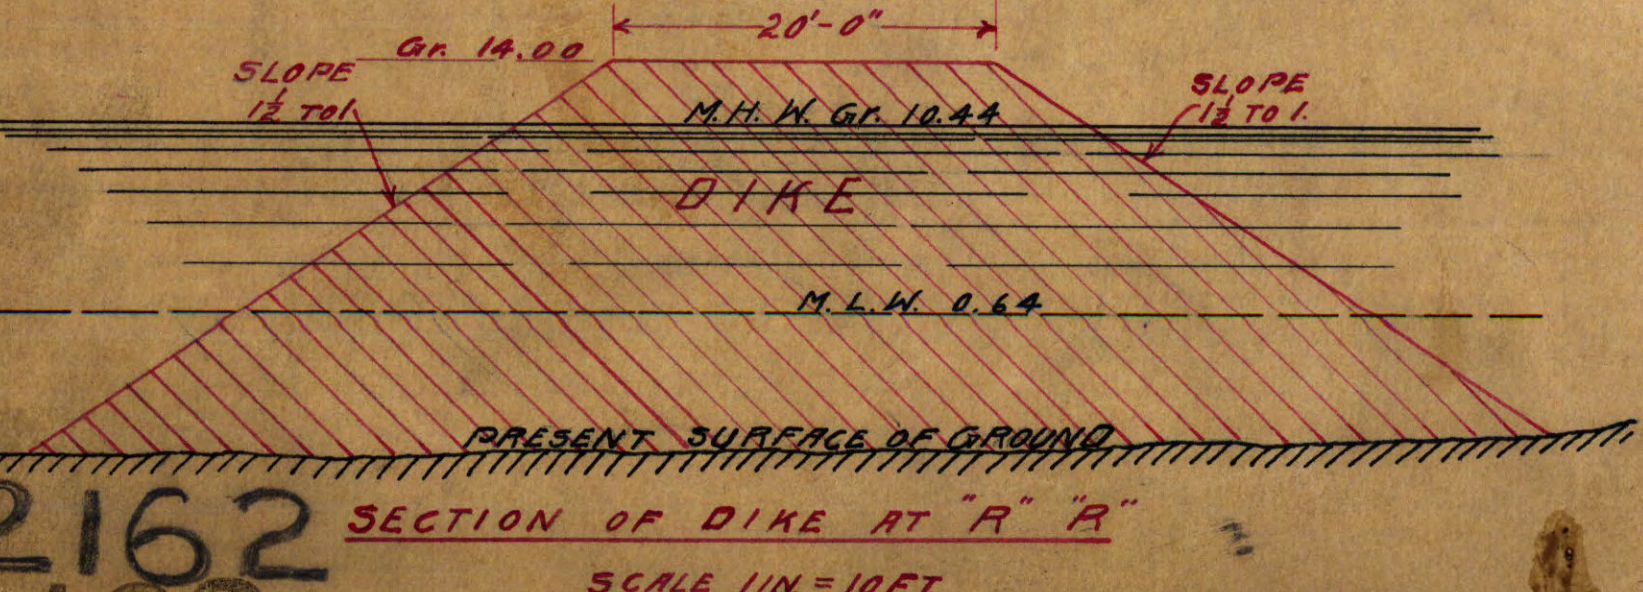 20'-0"
Gr. 14.00
SLOPE
1½ TO 1
SLOPE
1½ TO 1.
M.H.W. Gr. 10.44
DIKE
M.L.W. 0.64
PRESENT SURFACE OF GROUND
2162
SECTION OF DIKE AT "R" "R"
SCALE 1 IN = 10 FT